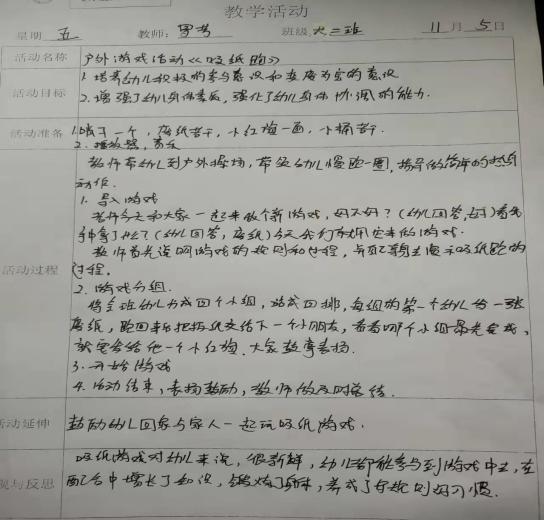 教学活动
星期 五 教师: 罗芳 班级: 大二班 11月5日
活动名称 户外游戏活动《吸纸跑》
活动目标 1. 培养幼儿积极的参与意识和变废为宝的意识
2. 增强了幼儿身体素质，强化了幼儿身体协调的能力.
活动准备 1. 一个，废纸若干，小红旗一面，小桶若干.
2. 播放器，音乐
教师带幼儿到户外操场，带领幼儿慢跑一圈，指导做简单的热身
动作.
1. 导入游戏
老师今天和大家一起来做个新游戏，好不好？(幼儿回答,好)看我
手拿了什么？(幼儿回答，废纸)今天我们就用它来做游戏.
教师首先说明游戏的规则和过程，与配班主演示吸纸跑的
活动过程 过程.
2. 游戏分组.
将全班幼儿分成四个小组，站成四排，每组的第一个幼儿发一张
废纸，跑回来后把纸交给下一个小朋友，看看哪个小组最先完成，
就先奖给他一个小红旗. 大家鼓掌表扬.
3. 开始游戏
4. 活动结束，表扬鼓励，教师做及时总结.
活动延伸 鼓励幼儿回家与家人一起玩吸纸游戏.
吸纸游戏对幼儿来说，很新鲜，幼儿都能参与到游戏中去，在
观与反思 配合中增长了知识，锻炼了身体，养成了守规则好习惯.